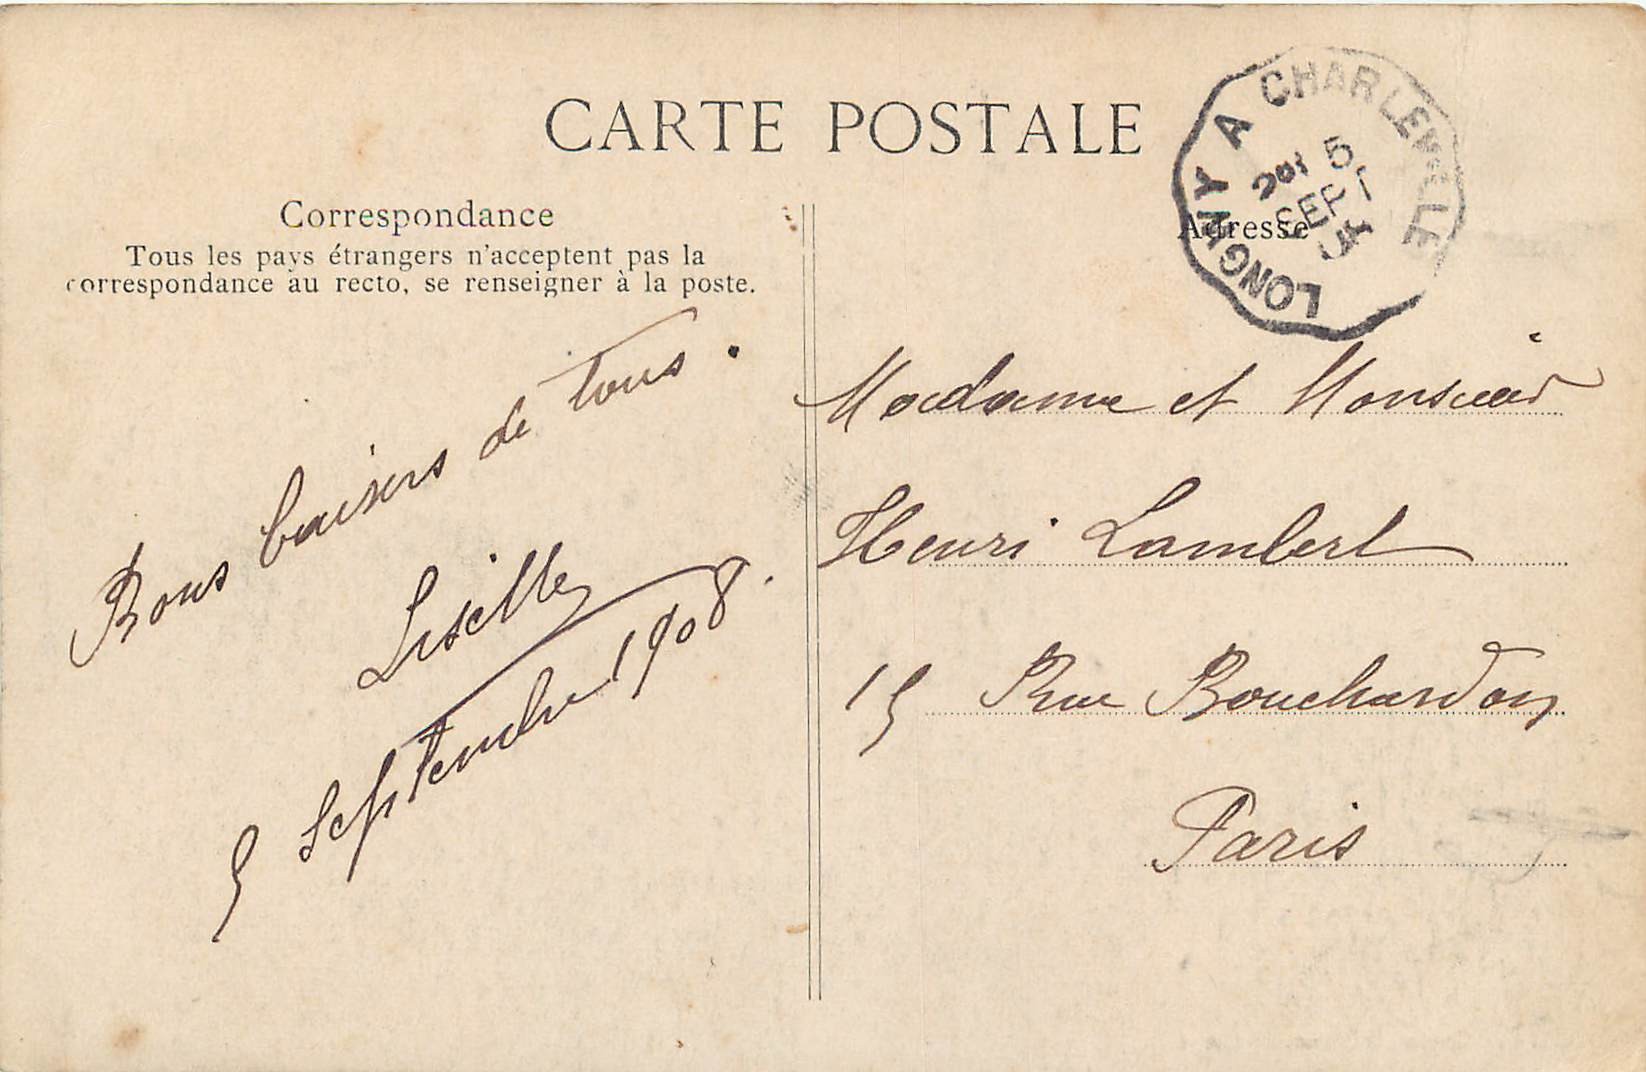 CARTE POSTALE
LONGWY A CHARLEVILLE
5
SEPT
Correspondance
Tous les pays étrangers n'acceptent pas la
correspondance au recto, se renseigner à la poste.
Adresse
Bons baisers de tous.
5 Septembre 1908.
Madame et Monsieur
Henri Lambert
15 Rue Bouchardon
Paris